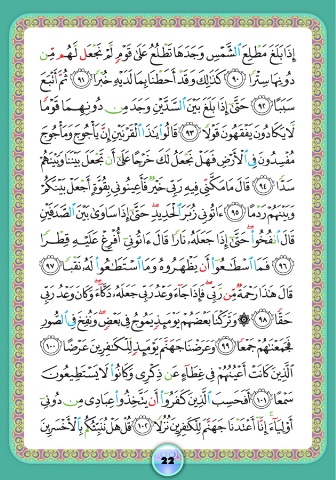 إِذَا بَلَغَ مَطْلِعَ الشَّمْسِ وَجَدَهَا تَطْلُعُ عَلَىٰ قَوْمٍ لَّمْ نَجْعَل لَّهُم مِّن
دُونِهَا سِتْرًا ٩٠ كَذَٰلِكَ وَقَدْ أَحَطْنَا بِمَا لَدَيْهِ خُبْرًا ٩١ ثُمَّ أَتْبَعَ
سَبَبًا ٩٢ حَتَّىٰ إِذَا بَلَغَ بَيْنَ السَّدَّيْنِ وَجَدَ مِن دُونِهِمَا قَوْمًا
لَّا يَكَادُونَ يَفْقَهُونَ قَوْلًا ٩٣ قَالُوا يَٰذَا الْقَرْنَيْنِ إِنَّ يَأْجُوجَ وَمَأْجُوجَ
مُفْسِدُونَ فِي الْأَرْضِ فَهَلْ نَجْعَلُ لَكَ خَرْجًا عَلَىٰ أَن تَجْعَلَ بَيْنَنَا وَبَيْنَهُمْ
سَدًّا ٩٤ قَالَ مَا مَكَّنِّي فِيهِ رَبِّي خَيْرٌ فَأَعِينُونِي بِقُوَّةٍ أَجْعَلْ بَيْنَكُمْ
وَبَيْنَهُمْ رَدْمًا ٩٥ ءَاتُونِي زُبَرَ الْحَدِيدِ حَتَّىٰ إِذَا سَاوَىٰ بَيْنَ الصَّدَفَيْنِ
قَالَ انفُخُوا حَتَّىٰ إِذَا جَعَلَهُ نَارًا قَالَ ءَاتُونِي أُفْرِغْ عَلَيْهِ قِطْرًا
٩٦ فَمَا اسْطَٰعُوا أَن يَظْهَرُوهُ وَمَا اسْتَطَٰعُوا لَهُ نَقْبًا ٩٧
قَالَ هَٰذَا رَحْمَةٌ مِّن رَّبِّي فَإِذَا جَاءَ وَعْدُ رَبِّي جَعَلَهُ دَكَّاءَ وَكَانَ وَعْدُ رَبِّي
حَقًّا ٩٨ ۞ وَتَرَكْنَا بَعْضَهُمْ يَوْمَئِذٍ يَمُوجُ فِي بَعْضٍ وَنُفِخَ فِي الصُّورِ
فَجَمَعْنَٰهُمْ جَمْعًا ٩٩ وَعَرَضْنَا جَهَنَّمَ يَوْمَئِذٍ لِّلْكَٰفِرِينَ عَرْضًا ١٠٠
الَّذِينَ كَانَتْ أَعْيُنُهُمْ فِي غِطَاءٍ عَن ذِكْرِي وَكَانُوا لَا يَسْتَطِيعُونَ
سَمْعًا ١٠١ أَفَحَسِبَ الَّذِينَ كَفَرُوا أَن يَتَّخِذُوا عِبَادِي مِن دُونِي
أَوْلِيَاءَ إِنَّا أَعْتَدْنَا جَهَنَّمَ لِلْكَٰفِرِينَ نُزُلًا ١٠٢ قُلْ هَلْ نُنَبِّئُكُم بِالْأَخْسَرِينَ
22